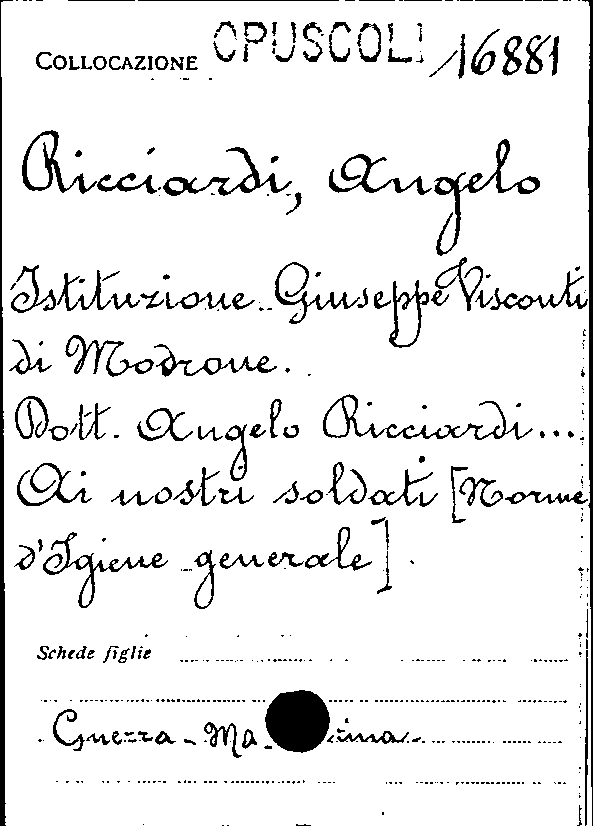 COLLOCAZIONE OPUSCOLI 16881
Ricciardi, Angelo
Istituzione Giuseppe Visconti
di Modrone.
Dott. Angelo Ricciardi...
Ai nostri soldati [Norme
d'Igiene generale].
Schede figlie
Guerra - Ma